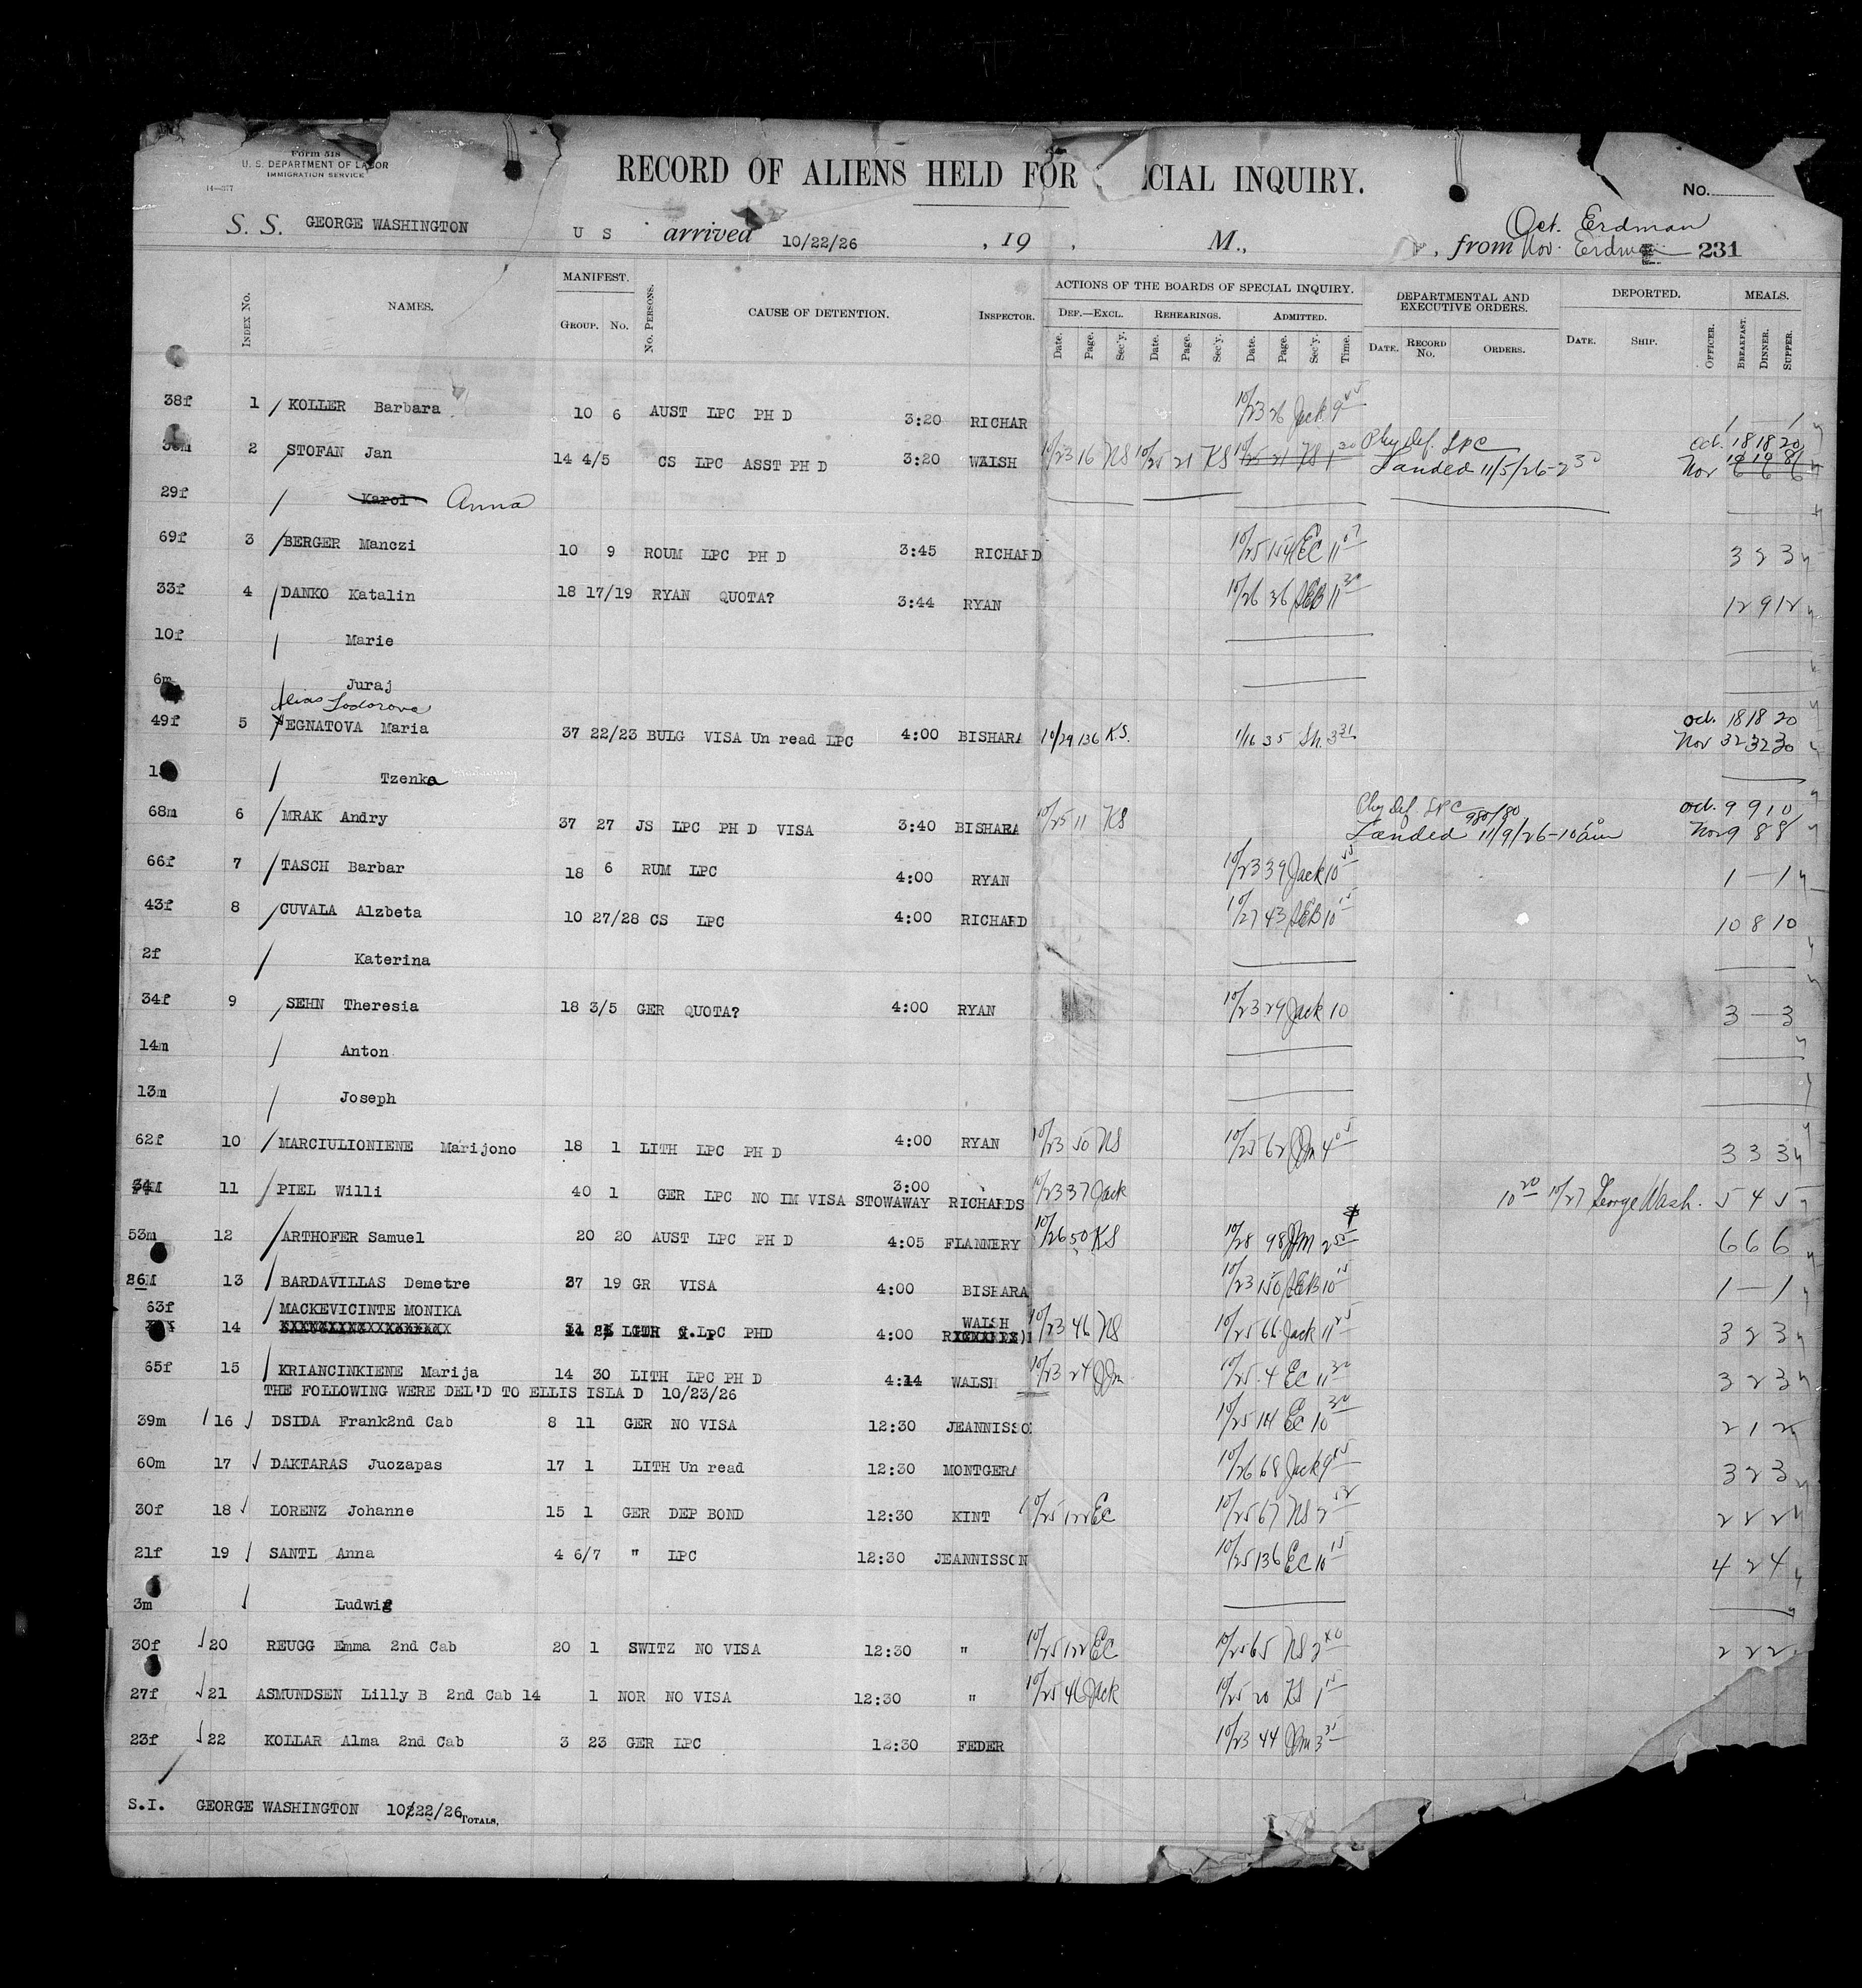 Form 518
U. S. DEPARTMENT OF LABOR
IMMIGRATION SERVICE
14—377
RECORD OF ALIENS HELD FOR CIAL INQUIRY.
No.
S. S. GEORGE WASHINGTON U S arrived 10/22/26 , 19 , M., from
Oct. Erdman
Nov. Erdman 231
INDEX No. NAMES. MANIFEST. GROUP. No. No. PERSONS. CAUSE OF DETENTION. INSPECTOR. ACTIONS OF THE BOARDS OF SPECIAL INQUIRY. DEF.—EXCL. REHEARINGS. ADMITTED. DEPARTMENTAL AND EXECUTIVE ORDERS. DEPORTED. MEALS.
Date. Page. Sec'y. Date. Page. Sec'y. Date. Page. Sec'y. Time. DATE. RECORD No. ORDERS. DATE. SHIP. OFFICER. BREAKFAST. DINNER. SUPPER.
38f 1 / KOLLER Barbara 10 6 AUST LPC PH D 3:20 RICHAR 10/23 26 Jack 9 45 1 1
2 / STOFAN Jan 14 4/5 CS LPC ASST PH D 3:20 WALSH 10/23 16 NS 10/25 21 KS 10/25 21 KS 1 30 Phy Def. LPC Oct. 18 18 20
Landed 11/5/26-2 30 Nov
29f / Karol Anna
69f 3 / BERGER Manczi 10 9 ROUM LPC PH D 3:45 RICHARD 10/25 154 EC 11 07 3 2 3
33f 4 / DANKO Katalin 18 17/19 RYAN QUOTA? 3:44 RYAN 10/26 36 SEB 11 30 12 9 12
10f / Marie
6m Juraj
Alias Todorova
49f 5 EGNATOVA Maria 37 22/23 BULG VISA Un read LPC 4:00 BISHARA 10/29 136 KS. 1/16 35 Sh. 3 31 Oct. 18 18 20
Nov 32 32 30
/ Tzenka
68m 6 / MRAK Andry 37 27 JS LPC PH D VISA 3:40 BISHARA 10/25 11 KS Phy Def. LPC 980/80 Oct. 9 9 10
Landed 11/9/26-10 am Nov 9 8 8
66f 7 / TASCH Barbar 18 6 RUM LPC 4:00 RYAN 10/23 39 Jack 10 55 1 — 1
43f 8 / CUVALA Alzbeta 10 27/28 CS LPC 4:00 RICHARD 10/27 43 SEB 10 15 10 8 10
2f / Katerina
34f 9 / SEHN Theresia 18 3/5 GER QUOTA? 4:00 RYAN 10/23 29 Jack 10 3 — 3
14m / Anton
13m / Joseph
62f 10 / MARCIULIONIENE Marijono 18 1 LITH LPC PH D 4:00 RYAN 10/23 50 NS 10/25 62 JJm 4 05 3 3 3
34M 11 / PIEL Willi 40 1 GER LPC NO IM VISA STOWAWAY 3:00 RICHARDS 10/23 37 Jack 10 20 10/27 George Wash. 5 4 5
53m 12 / ARTHOFER Samuel 20 20 AUST LPC PH D 4:05 FLANNERY 10/26 50 KS 10/28 98 JJM 2 55 6 6 6
26M 13 / BARDAVILLAS Demetre 37 19 GR VISA 4:00 BISHARA 10/23 150 SEB 10 15 1 — 1
63f / MACKEVICINTE MONIKA WALSH
14 LITH LPC PHD 4:00 10/23 46 NS 10/25 66 Jack 11 25 3 2 3
65f 15 / KRIANCINKIENE Marija 14 30 LITH LPC PH D 4:14 WALSH 10/23 24 JJm 10/25 4 EC 11 30 3 2 3
THE FOLLOWING WERE DEL'D TO ELLIS ISLA D 10/23/26
39m 16 DSIDA Frank2nd Cab 8 11 GER NO VISA 12:30 JEANNISSO 10/25 114 EC 10 30 2 1 2
60m 17 DAKTARAS Juozapas 17 1 LITH Un read 12:30 MONTGERA 10/26 68 Jack 9 45 3 2 3
30f 18 LORENZ Johanne 15 1 GER DEP BOND 12:30 KINT 10/25 122 EC 10/25 67 NS 2 52 2 2 2
21f 19 SANTL Anna 4 6/7 " LPC 12:30 JEANNISSON 10/25 136 EC 10 15 4 2 4
3m Ludwig
30f 20 REUGG Emma 2nd Cab 20 1 SWITZ NO VISA 12:30 " 10/25 122 EC 10/25 65 NS 2 40 2 2 2
27f 21 ASMUNDSEN Lilly B 2nd Cab 14 1 NOR NO VISA 12:30 " 10/25 46 Jack 10/25 20 KS 1 15
23f 22 KOLLAR Alma 2nd Cab 3 23 GER LPC 12:30 FEDER 10/23 44 JJm 3 35
S.I. GEORGE WASHINGTON 10/22/26 TOTALS.